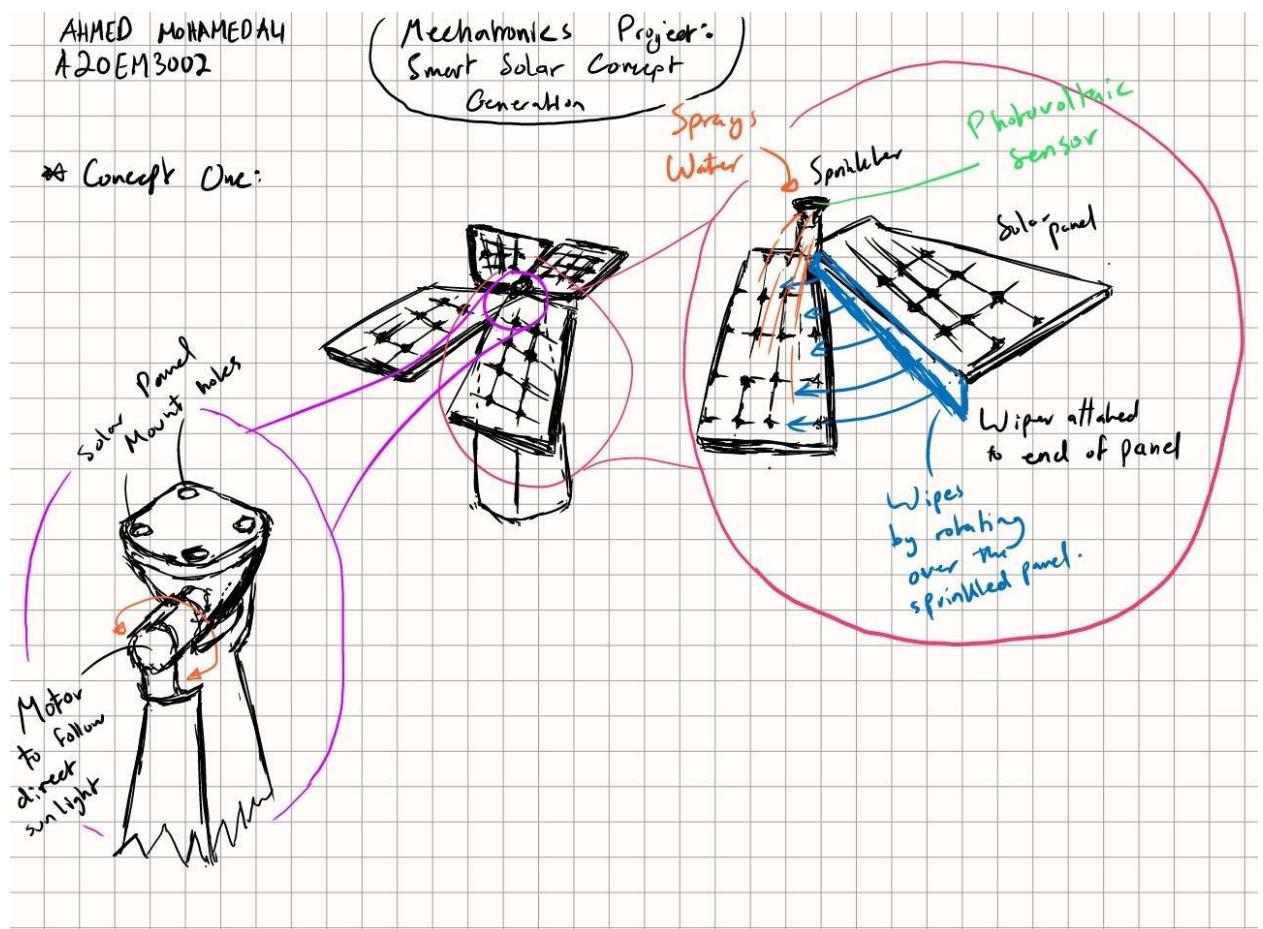 AHMED MOHAMEDALI
A20EM3002
Mechatronics Project:
Smart Solar Concept
Generation
Concept One:
Sprays
Water
Sprinkler
Photovoltaic
sensor
Solar panel
Wiper attached
to end of panel
Wipes
by rotating
over the
sprinkled panel.
Solar Panel
Mount holes
Motor
to follow
direct
sunlight